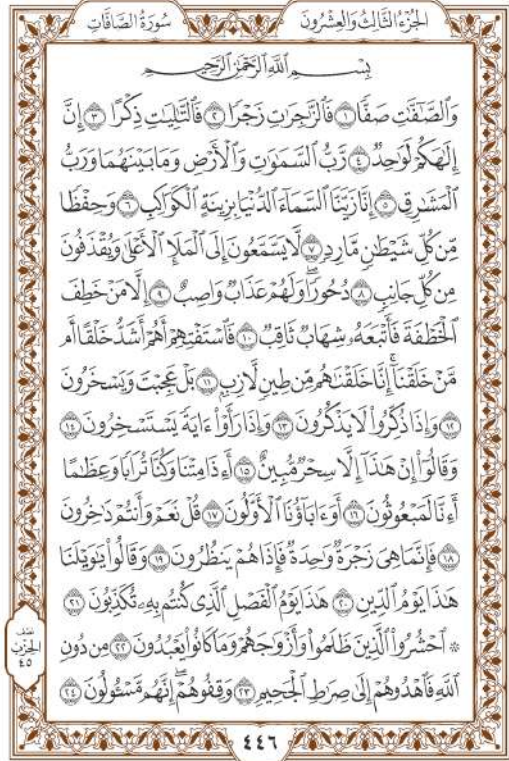 الجزء الثالث والعشرون
سورة الصافات
بِسْمِ ٱللَّهِ ٱلرَّحْمَٰنِ ٱلرَّحِيمِ
وَٱلصَّٰٓفَّٰتِ صَفًّا ١ فَٱلزَّٰجِرَٰتِ زَجْرًا ٢ فَٱلتَّٰلِيَٰتِ ذِكْرًا ٣ إِنَّ
إِلَٰهَكُمْ لَوَٰحِدٌ ٤ رَّبُّ ٱلسَّمَٰوَٰتِ وَٱلْأَرْضِ وَمَا بَيْنَهُمَا وَرَبُّ
ٱلْمَشَٰرِقِ ٥ إِنَّا زَيَّنَّا ٱلسَّمَآءَ ٱلدُّنْيَا بِزِينَةٍ ٱلْكَوَاكِبِ ٦ وَحِفْظًا
مِّن كُلِّ شَيْطَٰنٍ مَّارِدٍ ٧ لَّا يَسَّمَّعُونَ إِلَى ٱلْمَلَإِ ٱلْأَعْلَىٰ وَيُقْذَفُونَ
مِن كُلِّ جَانِبٍ ٨ دُحُورًا ۖ وَلَهُمْ عَذَابٌ وَاصِبٌ ٩ إِلَّا مَنْ خَطِفَ
ٱلْخَطْفَةَ فَأَتْبَعَهُۥ شِهَابٌ ثَاقِبٌ ١٠ فَٱسْتَفْتِهِمْ أَهُمْ أَشَدُّ خَلْقًا أَم
مَّنْ خَلَقْنَآ ۚ إِنَّا خَلَقْنَٰهُم مِّن طِينٍ لَّازِبٍۭ ١١ بَلْ عَجِبْتَ وَيَسْخَرُونَ
١٢ وَإِذَا ذُكِّرُوا۟ لَا يَذْكُرُونَ ١٣ وَإِذَا رَأَوْا۟ ءَايَةً يَسْتَسْخِرُونَ ١٤
وَقَالُوٓا۟ إِنْ هَٰذَآ إِلَّا سِحْرٌ مُّبِينٌ ١٥ أَءِذَا مِتْنَا وَكُنَّا تُرَابًا وَعِظَٰمًا
أَءِنَّا لَمَبْعُوثُونَ ١٦ أَوَءَابَآؤُنَا ٱلْأَوَّلُونَ ١٧ قُلْ نَعَمْ وَأَنتُمْ دَٰخِرُونَ
١٨ فَإِنَّمَا هِىَ زَجْرَةٌ وَٰحِدَةٌ فَإِذَا هُمْ يَنظُرُونَ ١٩ وَقَالُوا۟ يَٰوَيْلَنَا
هَٰذَا يَوْمُ ٱلدِّينِ ٢٠ هَٰذَا يَوْمُ ٱلْفَصْلِ ٱلَّذِى كُنتُم بِهِۦ تُكَذِّبُونَ ٢١
۞ ٱحْشُرُوا۟ ٱلَّذِينَ ظَلَمُوا۟ وَأَزْوَٰجَهُمْ وَمَا كَانُوا۟ يَعْبُدُونَ ٢٢ مِن دُونِ
ٱللَّهِ فَٱهْدُوهُمْ إِلَىٰ صِرَٰطِ ٱلْجَحِيمِ ٢٣ وَقِفُوهُمْ ۖ إِنَّهُم مَّسْـُٔولُونَ ٢٤
نصف
الحزب
٤٥
٤٤٦